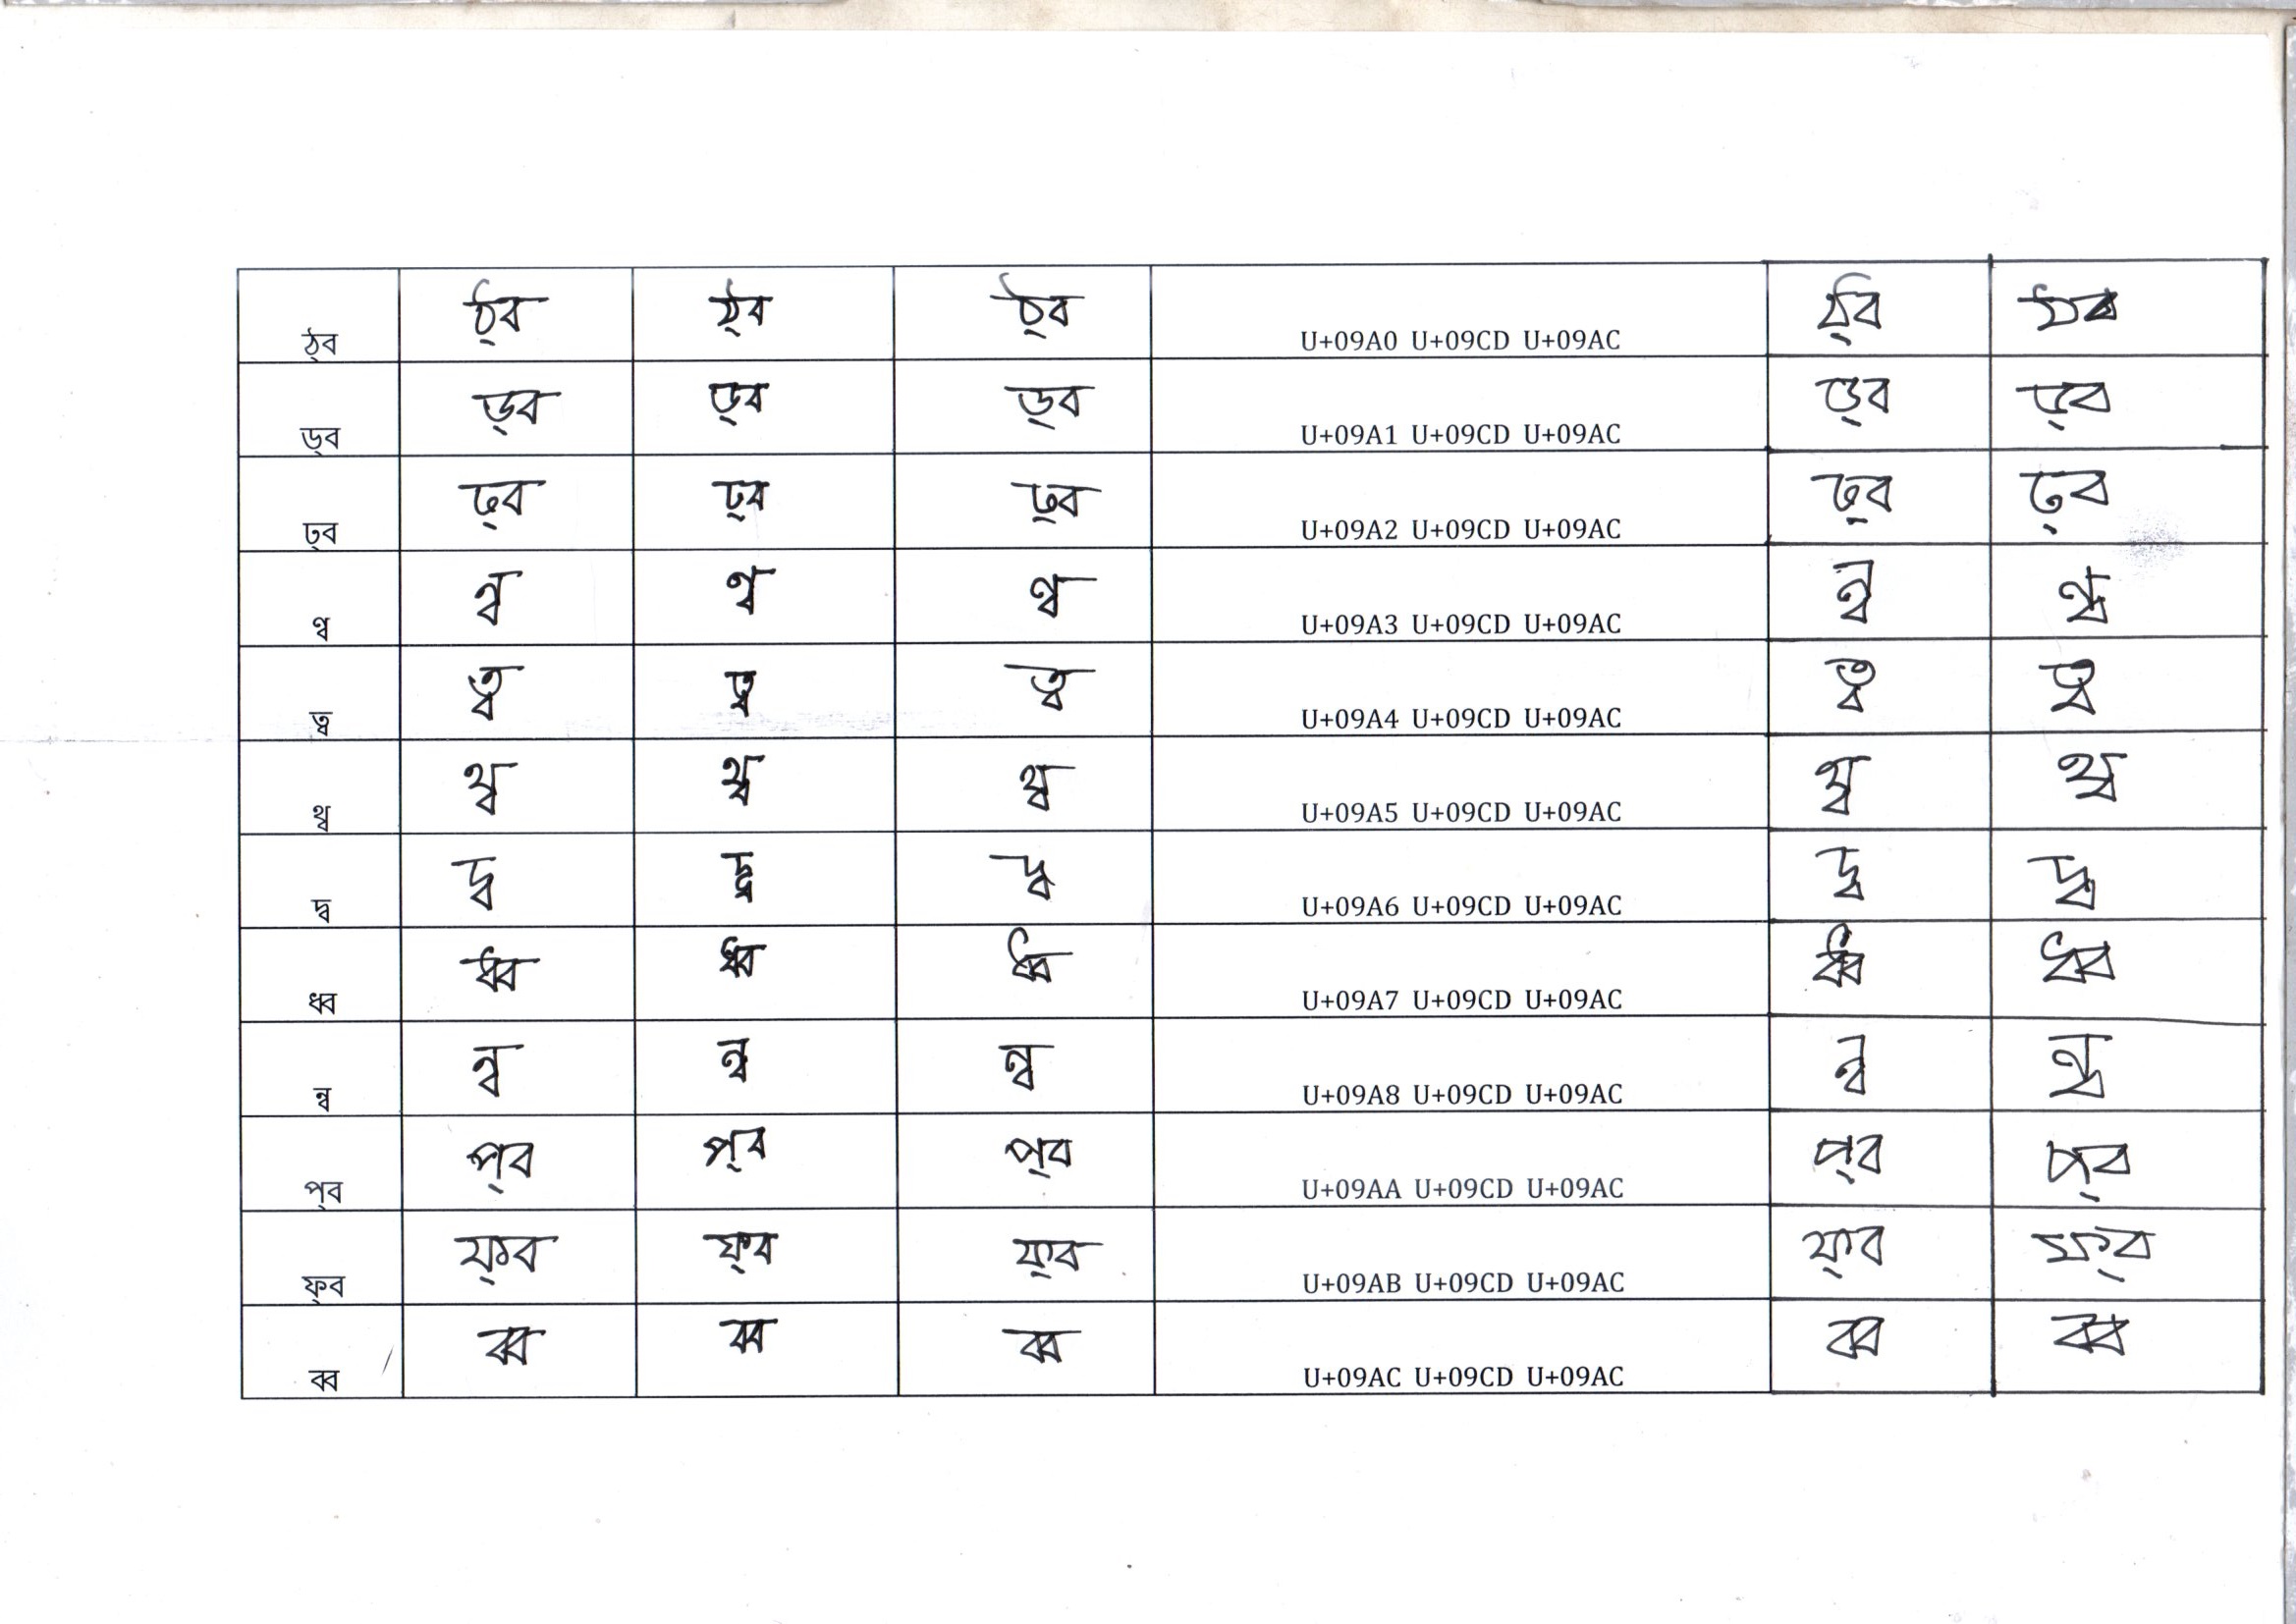 ঠ্ব ঠ্ব ঠ্ব ঠ্ব U+09A0 U+09CD U+09AC ঠ্ব ঠ্ব
ড্ব ড্ব ড্ব ড্ব U+09A1 U+09CD U+09AC ড্ব ড্ব
ঢ্ব ঢ্ব ঢ্ব ঢ্ব U+09A2 U+09CD U+09AC ঢ্ব ঢ্ব
ণ্ব ণ্ব ণ্ব ণ্ব U+09A3 U+09CD U+09AC ণ্ব ণ্ব
ত্ব ত্ব ত্ব ত্ব U+09A4 U+09CD U+09AC ত্ব ত্ব
থ্ব থ্ব থ্ব থ্ব U+09A5 U+09CD U+09AC থ্ব থ্ব
দ্ব দ্ব দ্ব দ্ব U+09A6 U+09CD U+09AC দ্ব দ্ব
ধ্ব ধ্ব ধ্ব ধ্ব U+09A7 U+09CD U+09AC ধ্ব ধ্ব
ন্ব ন্ব ন্ব ন্ব U+09A8 U+09CD U+09AC ন্ব ন্ব
প্ব প্ব প্ব প্ব U+09AA U+09CD U+09AC প্ব প্ব
ফ্ব ফ্ব ফ্ব ফ্ব U+09AB U+09CD U+09AC ফ্ব ফ্ব
ব্ব ব্ব ব্ব ব্ব U+09AC U+09CD U+09AC ব্ব ব্ব